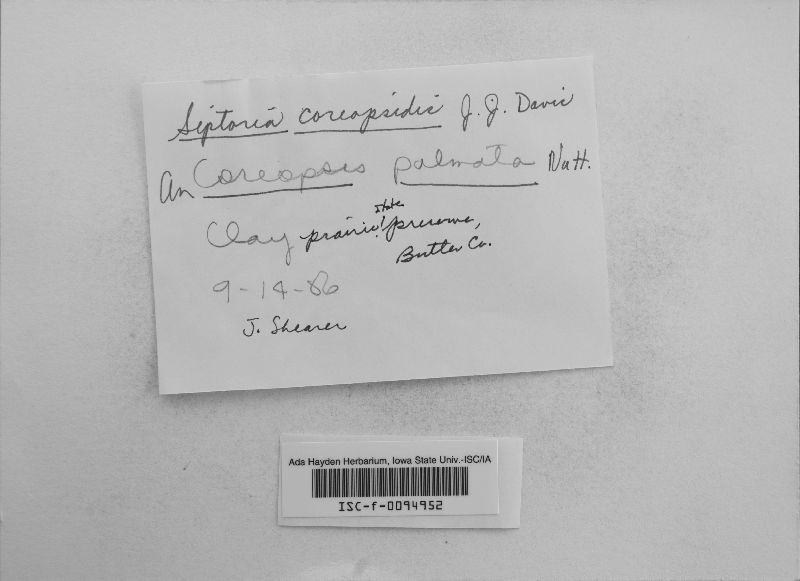 Septoria coreopsidis J. J. Davis
An Coreopsis palmata Nutt.
Clay prairie state preserve,
Butler Co.
9-14-86
J. Shearer
Ada Hayden Herbarium, Iowa State Univ.-ISC/IA
ISC-f-0094952